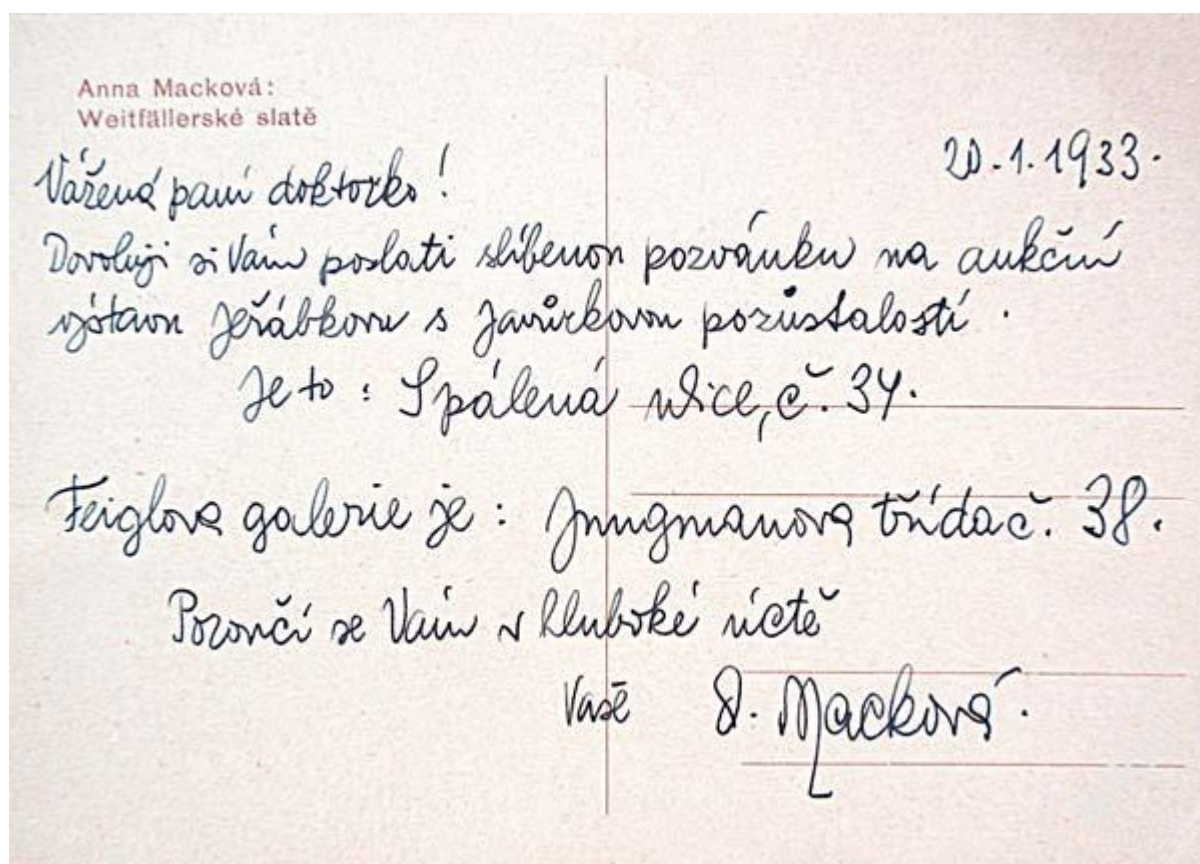 Anna Macková:
Weitfällerské slatě
20.1.1933.
Vážená paní doktorko!
Dovoluji si Vám poslati slíbenou pozvánku na aukční
výstavu Jeřábkovu s Javůrkovou pozůstalostí.
Je to: Spálená ulice, č. 34.
Feiglova galerie je: Jungmanova třída č. 38.
Poroučí se Vám v hluboké úctě
Vaše A. Macková.